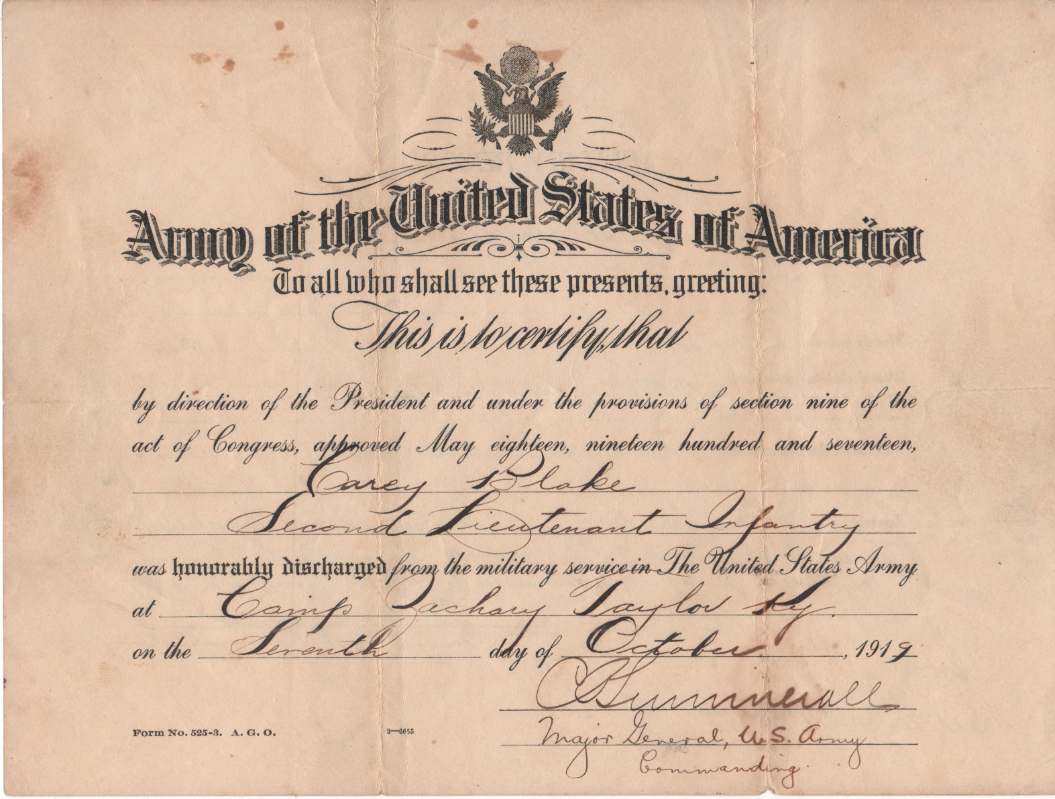 Army of the United States of America
To all who shall see these presents, greeting:
This is to certify, that
by direction of the President and under the provisions of section nine of the
act of Congress, approved May eighteen, nineteen hundred and seventeen,
Carey Blake
Second Lieutenant Infantry
was honorably discharged from the military service in The United States Army
at Camp Zachary Taylor Ky.
on the Seventh day of October, 1919
C Summerall
Form No. 525-3. A. G. O.
Major General, U.S. Army
Commanding.